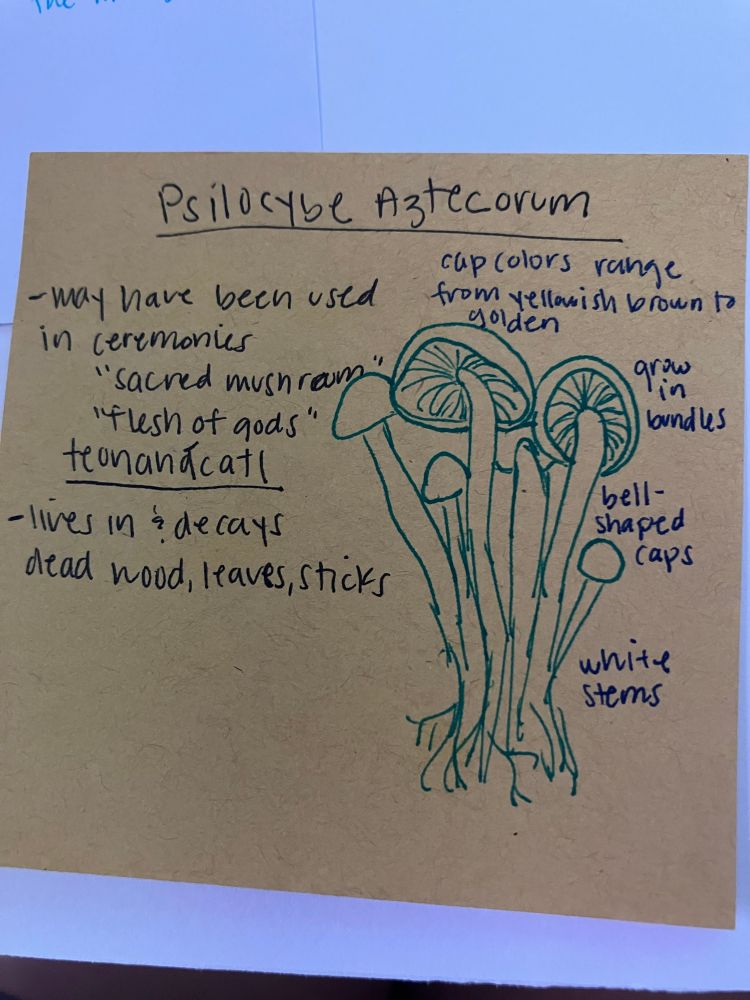 Psilocybe Aztecorum
-may have been used
in ceremonies
"sacred mushroom"
"flesh of gods"
teonanácatl
-lives in & decays
dead wood, leaves, sticks
cap colors range
from yellowish brown to
golden
grow
in
bundles
bell-
shaped
caps
white
stems